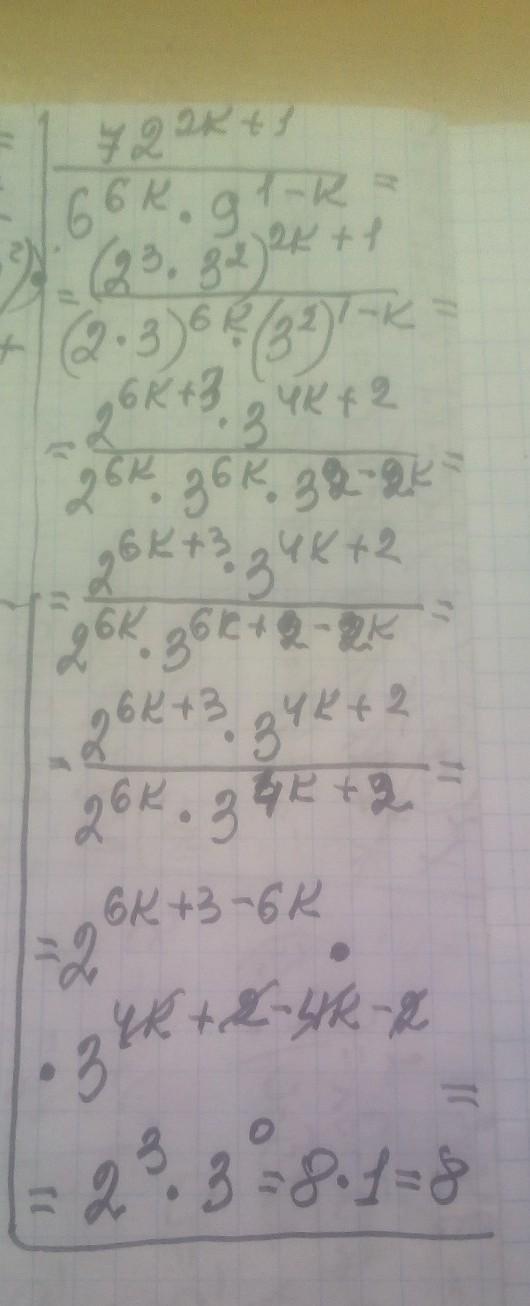 72^{2k+1}
/ 6^{6k} · 9^{1-k} =
= (2^3 · 3^2)^{2k+1}
/ (2·3)^{6k} · (3^2)^{1-k} =
= 2^{6k+3} · 3^{4k+2}
/ 2^{6k} · 3^{6k} · 3^{2-2k} =
= 2^{6k+3} · 3^{4k+2}
/ 2^{6k} · 3^{6k+2-2k} =
= 2^{6k+3} · 3^{4k+2}
/ 2^{6k} · 3^{4k+2} =
= 2^{6k+3-6k} ·
· 3^{4k+2-4k-2} =
= 2^3 · 3^0 = 8·1 = 8